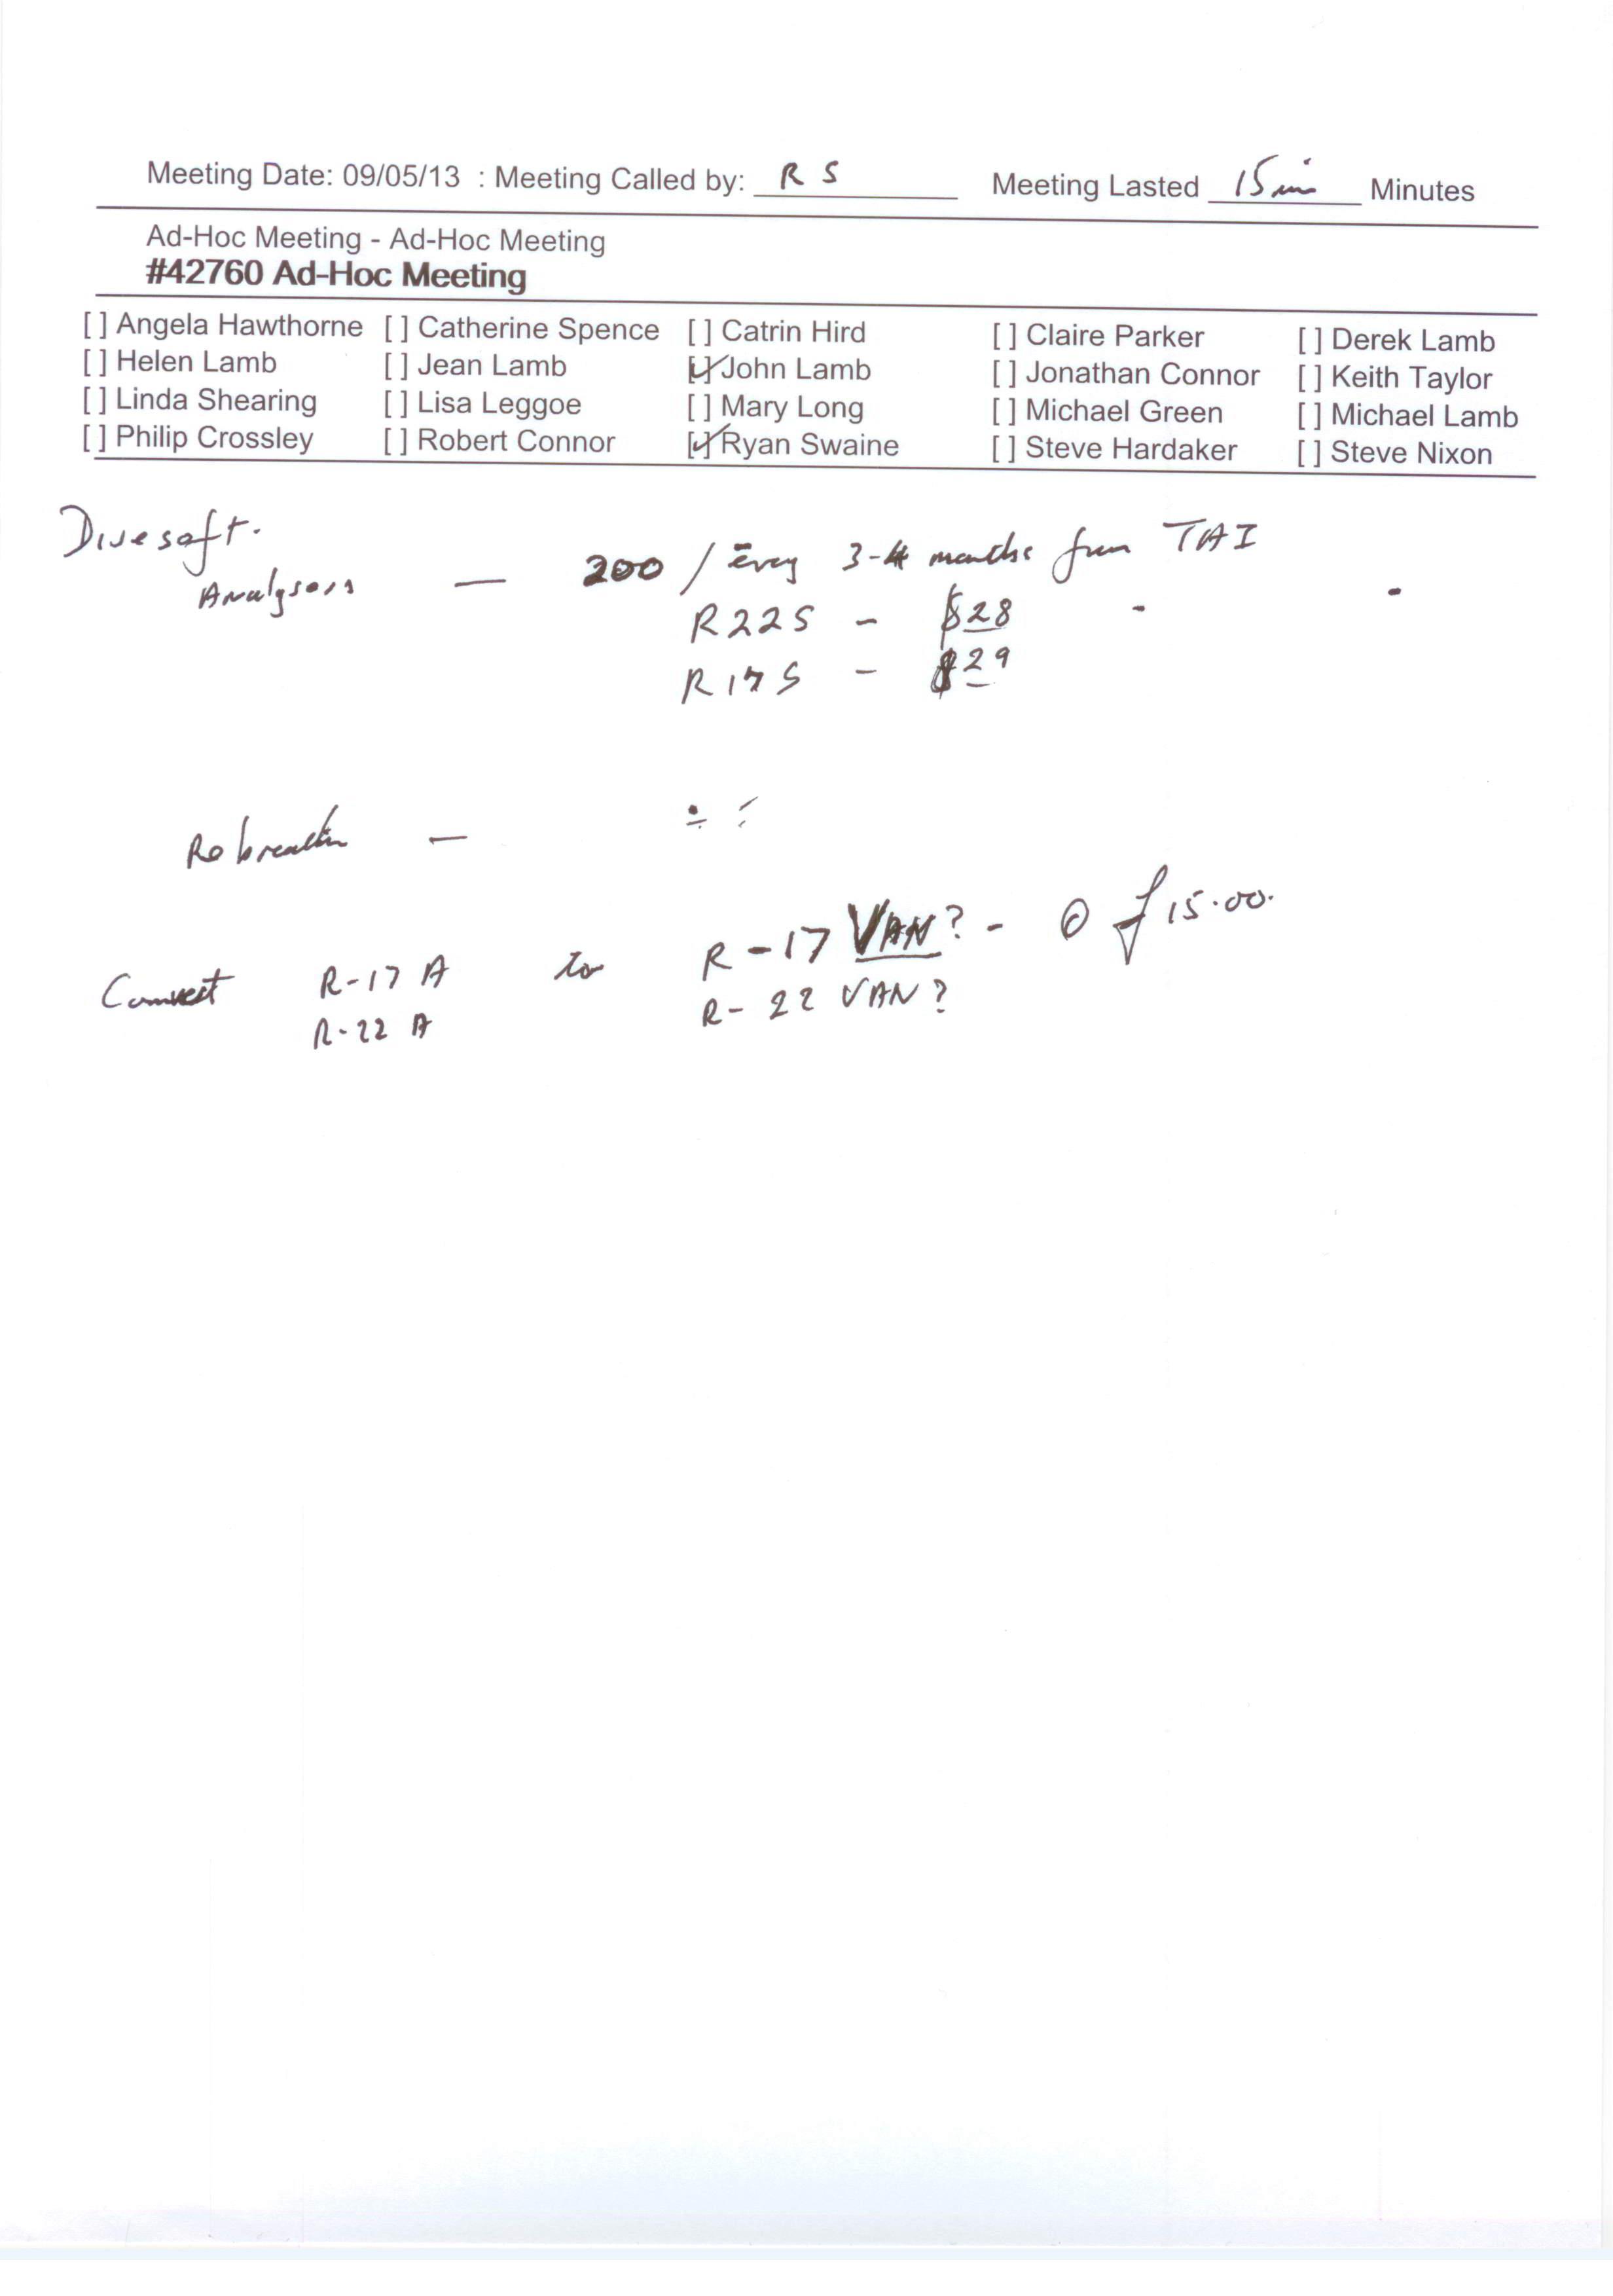 Meeting Date: 09/05/13 : Meeting Called by: R S Meeting Lasted 15 min Minutes
Ad-Hoc Meeting - Ad-Hoc Meeting
#42760 Ad-Hoc Meeting
[ ] Angela Hawthorne [ ] Catherine Spence [ ] Catrin Hird [ ] Claire Parker [ ] Derek Lamb
[ ] Helen Lamb [ ] Jean Lamb [✓] John Lamb [ ] Jonathan Connor [ ] Keith Taylor
[ ] Linda Shearing [ ] Lisa Leggoe [ ] Mary Long [ ] Michael Green [ ] Michael Lamb
[ ] Philip Crossley [ ] Robert Connor [✓] Ryan Swaine [ ] Steve Hardaker [ ] Steve Nixon
Divesoft.
Analysers — 200 / Every 3-4 months from TAI
R22S - $28
R17S - $29
Rebreather —
Convert R-17 A to R-17 VAN? - @ £15.00.
R-22 A R-22 VAN?